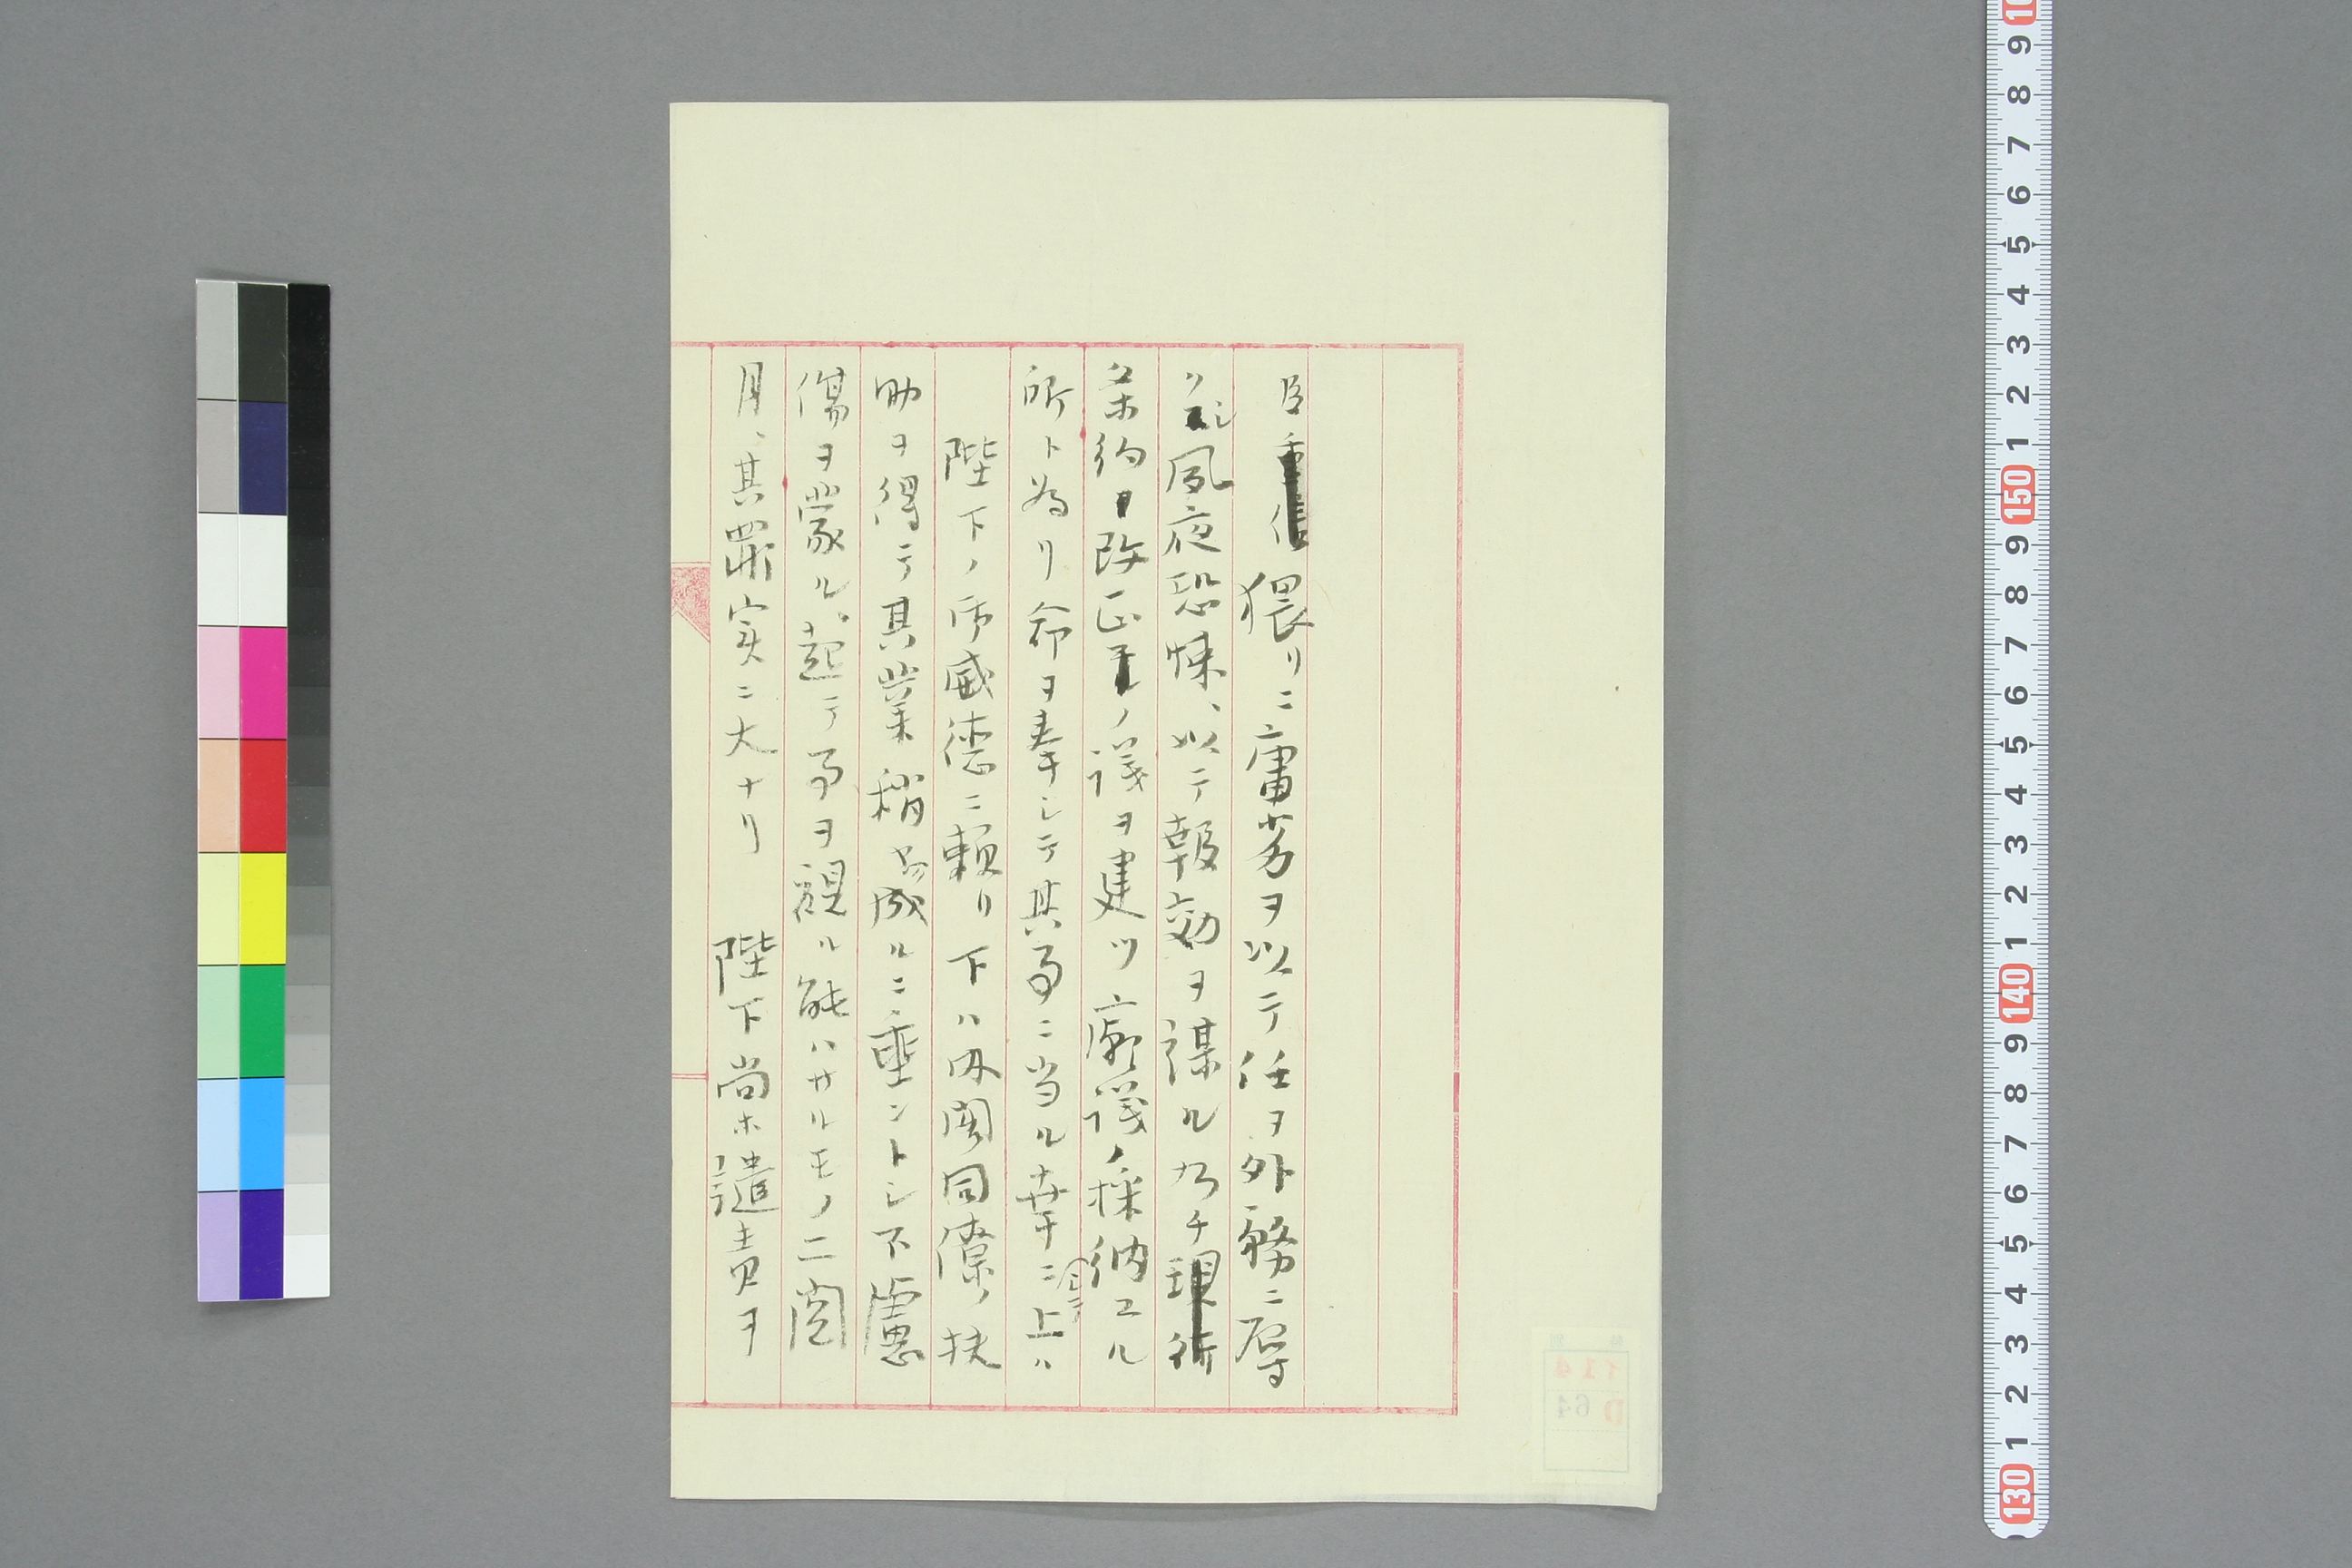 臣重信猥リニ庸劣ヲ以テ任ヲ外務ニ辱
クシ夙夜恐悚、以テ報効ヲ謀ル乃チ現行
条約改正ノ議ヲ建ツ廟議ノ採納スル
所ト為リ命ヲ奉シテ其事ニ当ル幸ニ上ハ
陛下ノ御威徳ニ頼リ下ハ内閣同僚ノ扶
助ヲ得テ其業稍成ルニ垂ントシ不慮
傷ヲ蒙ル、起テ事ヲ視ル能ハサルモノ二閲
月、其罪実ニ大ナリ 陛下尚ホ譴責ヲ
114
D 64
10 9 8 7 6 5 4 3 2 1 150 9 8 7 6 5 4 3 2 1 140 9 8 7 6 5 4 3 2 1 130